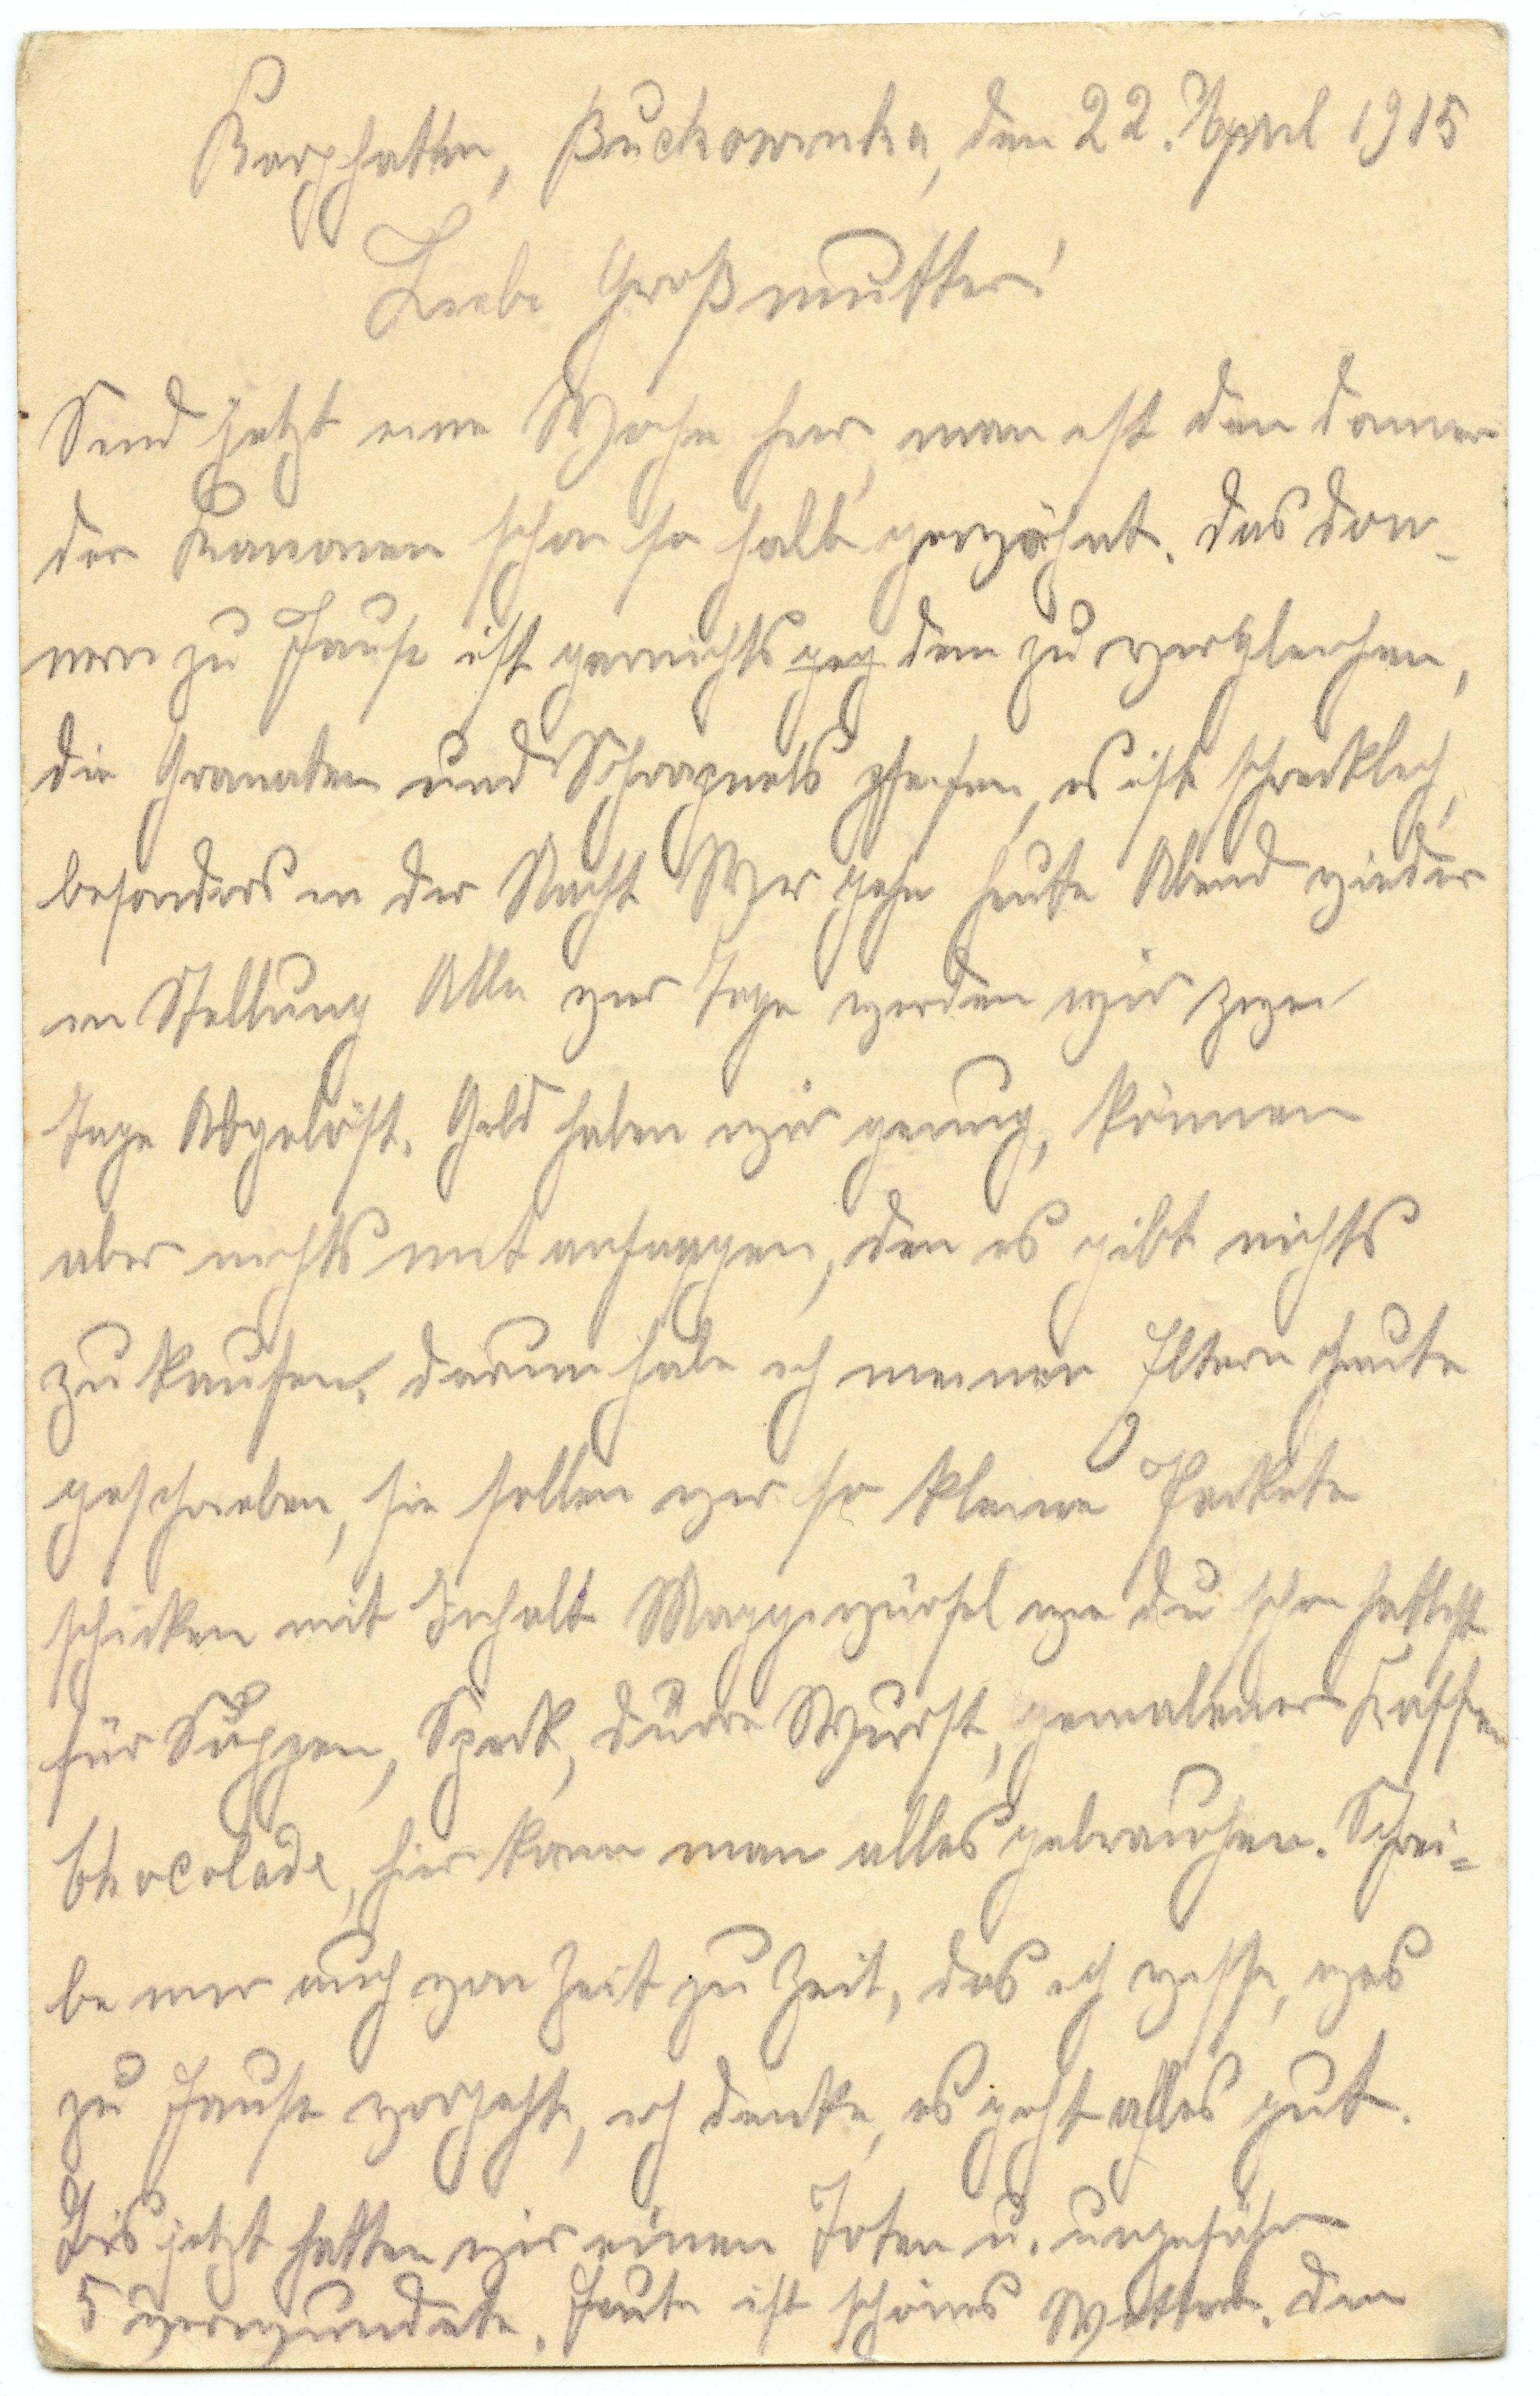 Karphatten, Buckowinka, den 22. April 1915
Liebe Großmutter!
Sind jetzt eine Woche hier, man ist den donner
der Kanonen schon so halb gewöhnt. Das don-
nern zu Hause ist garnichts geg dem zu vergleichen,
die Granaten und Schrapnels pfeifen, es ist schrecklich,
besonders in der Nacht Wir gehn heute Abend wieder
in Stellung Alle vier Tage werden wir zwei
Tage Abgelöst. Geld haben wir genug, können
aber nichts mit anfangen, den es gibt nichts
zu kaufen. Darum habe ich meinen Eltern heute
geschrieben, sie sollen mir so kleine Packete
schicken mit Inhalt Maggiwürfel wie du schon hattest
für Suppen, Speck, dürre Wurst, gemalener Kaffee
Chocolade, hier kann man alles gebrauchen. Schrei=
be mir auch von Zeit zu Zeit, das ich wisse, was
zu Hause vorgeht, ich denke, es geht alles gut.
Bis jetzt hatten wir einen Toten u. ungefähr
5 verwundete. Heute ist schönes Wetter. Den